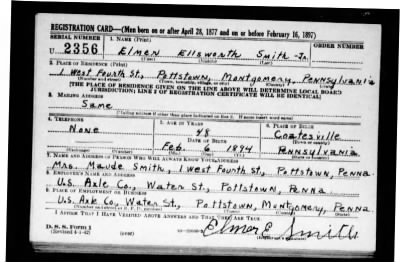 REGISTRATION CARD—(Men born on or after April 28, 1877 and on or before February 16, 1897)
SERIAL NUMBER 1. NAME (Print) ORDER NUMBER
U 2356 Elmer Ellsworth Smith-Jr.
2. PLACE OF RESIDENCE (Print)
1 West Fourth St., Pottstown, Montgomery, Pennsylvania
[THE PLACE OF RESIDENCE GIVEN ON THE LINE ABOVE WILL DETERMINE LOCAL BOARD
JURISDICTION; LINE 2 OF REGISTRATION CERTIFICATE WILL BE IDENTICAL]
3. MAILING ADDRESS
Same
[Mailing address if other than place indicated on line 2. If same insert word same]
4. TELEPHONE 5. AGE IN YEARS 6. PLACE OF BIRTH
None 48 Coatesville
DATE OF BIRTH (Town or county)
Feb. 1894 Pennsylvania
(Exchange) (Number) (Mo.) (Day) (Yr.) (State or country)
7. NAME AND ADDRESS OF PERSON WHO WILL ALWAYS KNOW YOUR ADDRESS
Mrs. Maude Smith, 1 West Fourth St., Pottstown, Penna.
8. EMPLOYER'S NAME AND ADDRESS
U.S. Axle Co., Water St., Pottstown, Penna.
9. PLACE OF EMPLOYMENT OR BUSINESS
U.S. Axle Co., Water St., Pottstown, Montgomery, Penna.
(Number and street or R. F. D. number) (Town) (County) (State)
I AFFIRM THAT I HAVE VERIFIED ABOVE ANSWERS AND THAT THEY ARE TRUE.
D. S. S. Form 1
(Revised 4-1-42) (over) Elmer E Smith
(Registrant's signature)